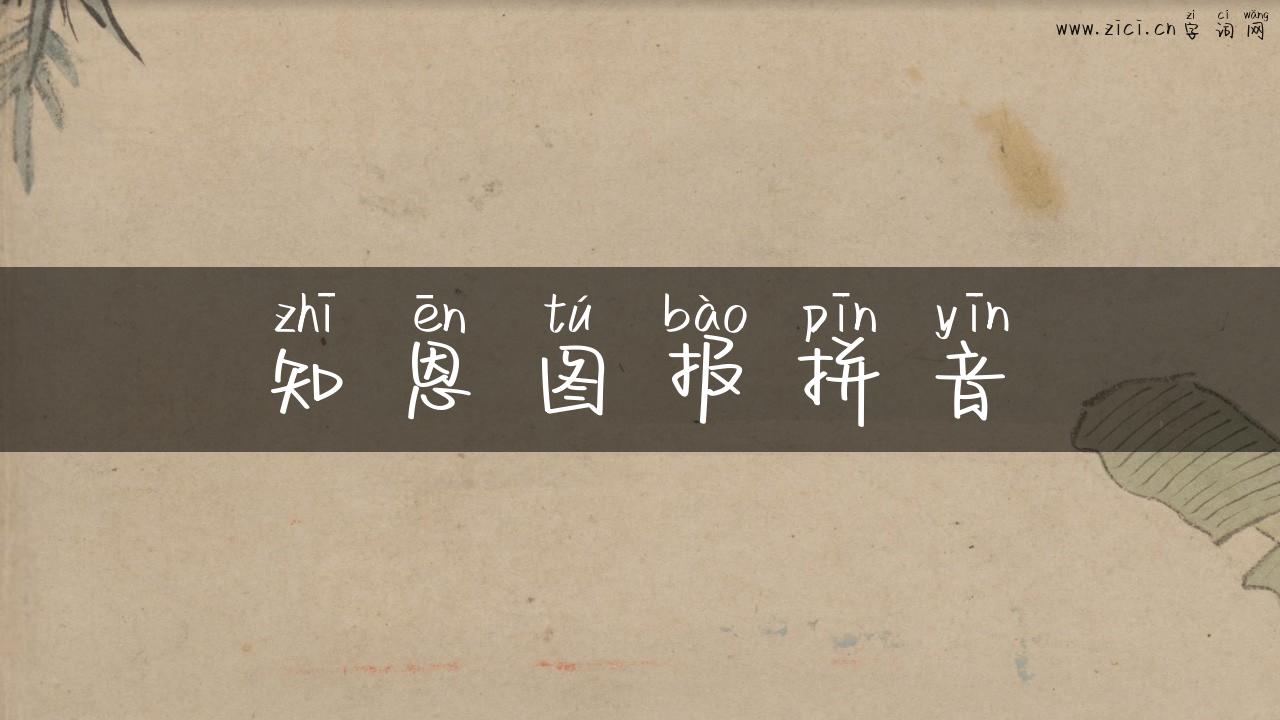 zì cí wǎng
www.zici.cn 字词网
zhī ēn tú bào pīn yīn
知恩图报拼音